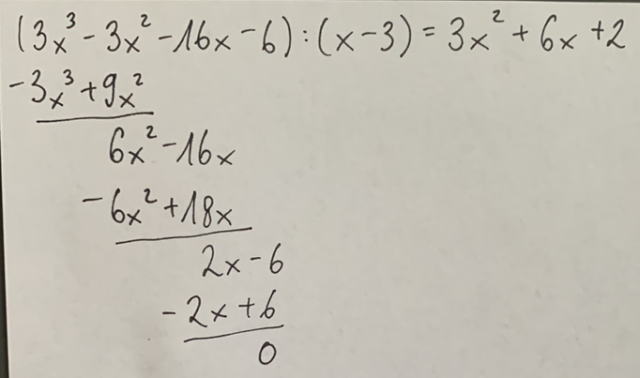 (3x³ - 3x² - 16x - 6) : (x - 3) = 3x² + 6x + 2
-3x³ + 9x²
6x² - 16x
-6x² + 18x
2x - 6
-2x + 6
0